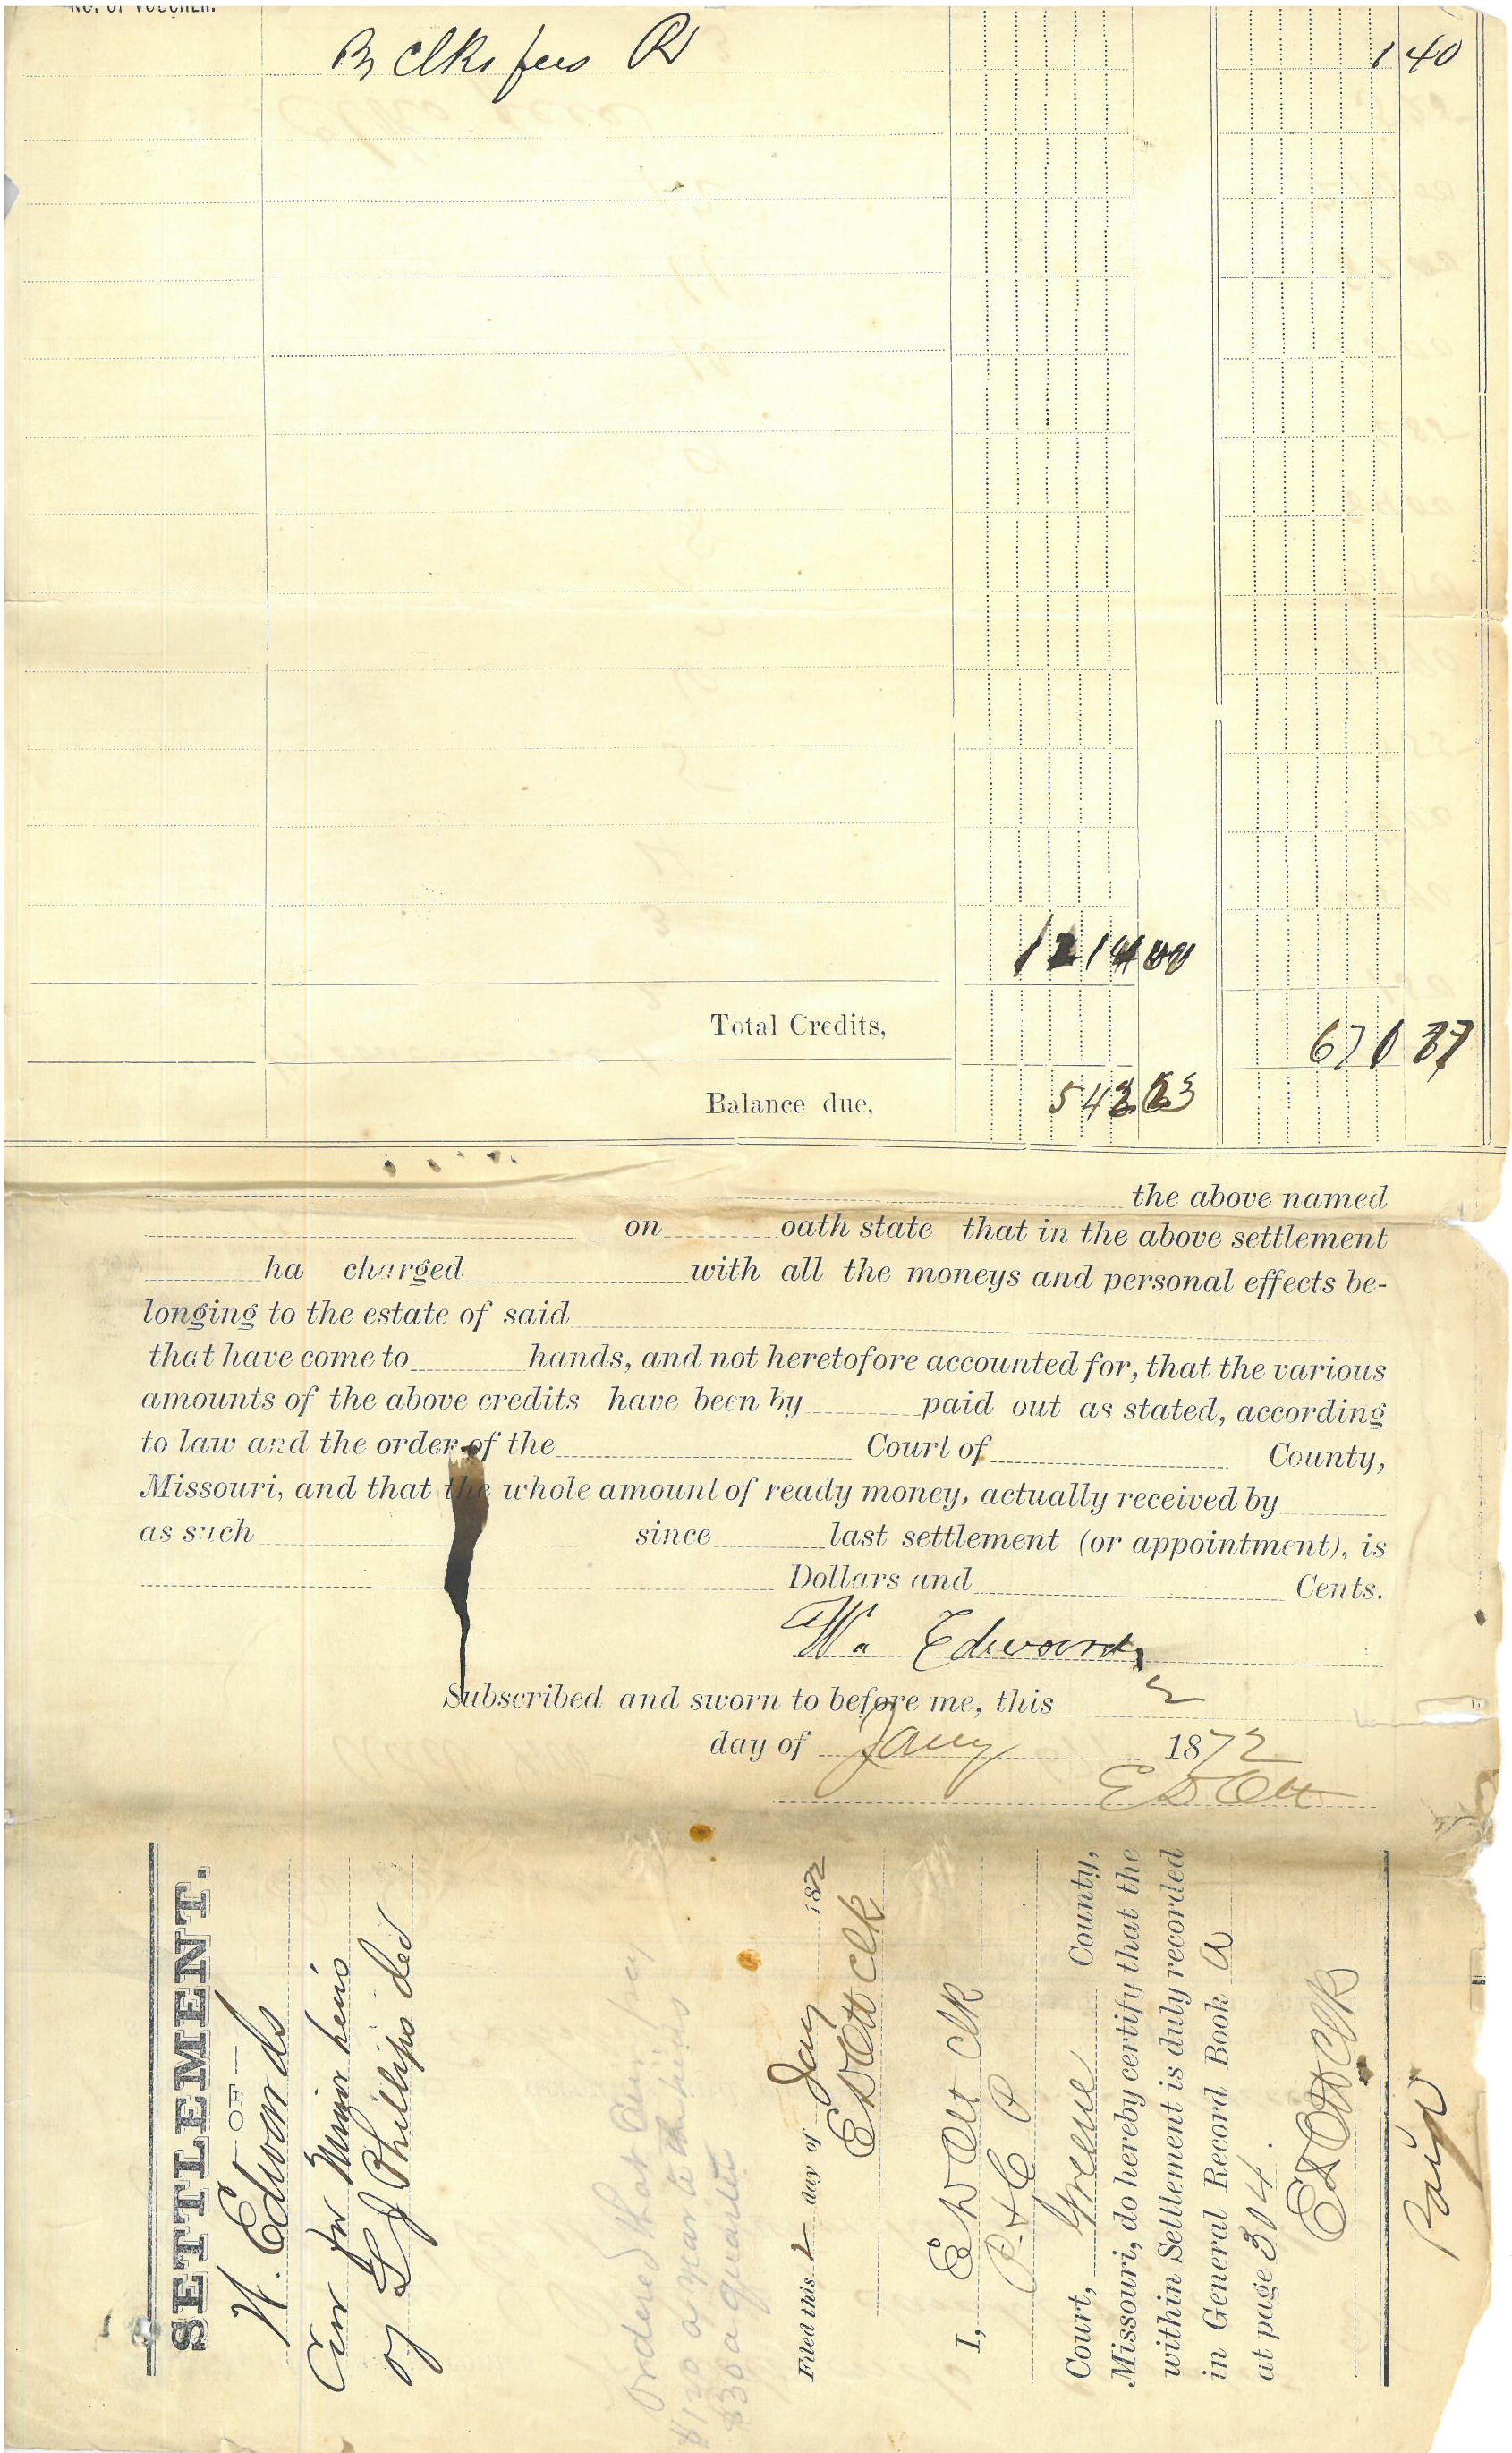 No. of Voucher.
By Clks fees 1 40
1214 00
Total Credits, 671 37
Balance due, 542 63
the above named
on oath state that in the above settlement
ha charged with all the moneys and personal effects be-
longing to the estate of said
that have come to hands, and not heretofore accounted for, that the various
amounts of the above credits have been by paid out as stated, according
to law and the order of the Court of County,
Missouri, and that the whole amount of ready money, actually received by
as such since last settlement (or appointment), is
Dollars and Cents.
Wm Edwards
Subscribed and sworn to before me, this 2
day of Jany 1872
E D Ott
SETTLEMENT.
—OF—
W. Edwards
Cur for Minor heirs
of L J Phillips decd
Ordered that Cur pay
$120 a year to the heirs
$30 a quarter
Filed this 2 day of Jany 1872
E D Ott Clk
I, E D Ott Clk
P & C P
Court, Greene County,
Missouri, do hereby certify that the
within Settlement is duly recorded
in General Record Book A
at page 304.
E D Ott Clk
Paid